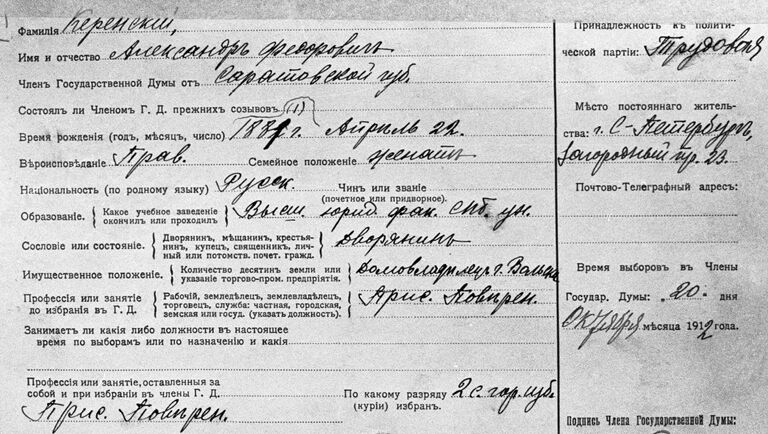 Фамилія Керенскій,
Имя и отчество Александръ Федоровичъ
Членъ Государственной Думы отъ Саратовской губ.
Состоялъ ли Членомъ Г. Д. прежнихъ созывовъ
Время рожденія (годъ, мѣсяцъ, число) 1881 г. Апрѣль 22.
Вѣроисповѣданіе Прав. Семейное положеніе женатъ
Національность (по родному языку) Русск. Чинъ или званіе (почетное или придворное).
Образованіе. Какое учебное заведеніе окончилъ или проходилъ Высш. юрид. фак. СПб. ун.
Сословіе или состояніе. Дворянинъ, мѣщанинъ, крестьянинъ, купецъ, священникъ, личный или потомств. почет. гражд. Дворянинъ
Имущественное положеніе. Количество десятинъ земли или указаніе торгово-пром. предпріятія. Домовладѣлецъ г. Вольска
Профессія или занятіе до избранія въ Г. Д. Рабочій, земледѣлецъ, землевладѣлецъ, торговецъ, служба: частная, городская, земская или госуд. (указать должность). Прис. Повѣрен.
Занимаетъ ли какія либо должности въ настоящее
время по выборамъ или по назначенію и какія
Профессія или занятіе, оставленныя за
собой и при избраніи въ члены Г. Д. Прис. Повѣрен.
По какому разряду (куріи) избранъ. 2 с. гор. изб.
Принадлежность къ полити-
ческой партіи: Трудовая
Мѣсто постояннаго житель-
ства: г. С-Петербургъ,
Загородный пр. 23.
Почтово-Телеграфный адресъ:
Время выборовъ въ Члены
Государ. Думы: „20" дня
Октября мѣсяца 1912 года.
Подпись Члена Государственной Думы: